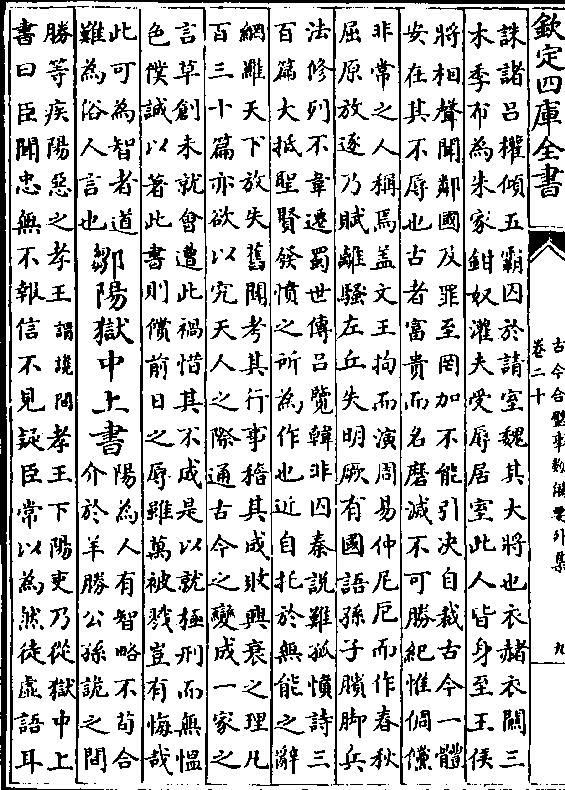 欽定四庫全書
古今合璧事類備要外集
卷二十
九
誅諸呂權傾五霸囚於請室魏其大將也衣赭衣關三
木季布為朱家鉗奴灌夫受辱居室此人皆身至王侯
將相聲聞鄰國及罪至罔加不能引決自裁古今一體
安在其不辱也古者富貴而名磨滅不可勝紀惟倜儻
非常之人稱焉盖文王拘而演周易仲尼厄而作春秋
屈原放逐乃賦離騷左丘失明厥有國語孫子臏脚兵
法修列不韋遷蜀世傳吕覽韓非囚秦說難孤憤詩三
百篇大抵聖賢發憤之所為作也近自托於無能之辭
網雖天下放失舊聞考其行事稽其成敗興衰之理凡
百三十篇亦欲以究天人之際通古今之變成一家之
言草創未就會遭此禍惜其不成是以就極刑而無愠
色僕誠以著此書則償前日之辱雖萬被戮豈有悔哉
此可為智者道
難為俗人言也
鄒陽獄中上書
陽為人有智略不苟合
介於羊勝公孫詭之間
勝等疾陽惡之孝王謂讒間孝王下陽吏乃從獄中上
書曰臣聞忠無不報信不見疑臣常以為然徒虛語耳